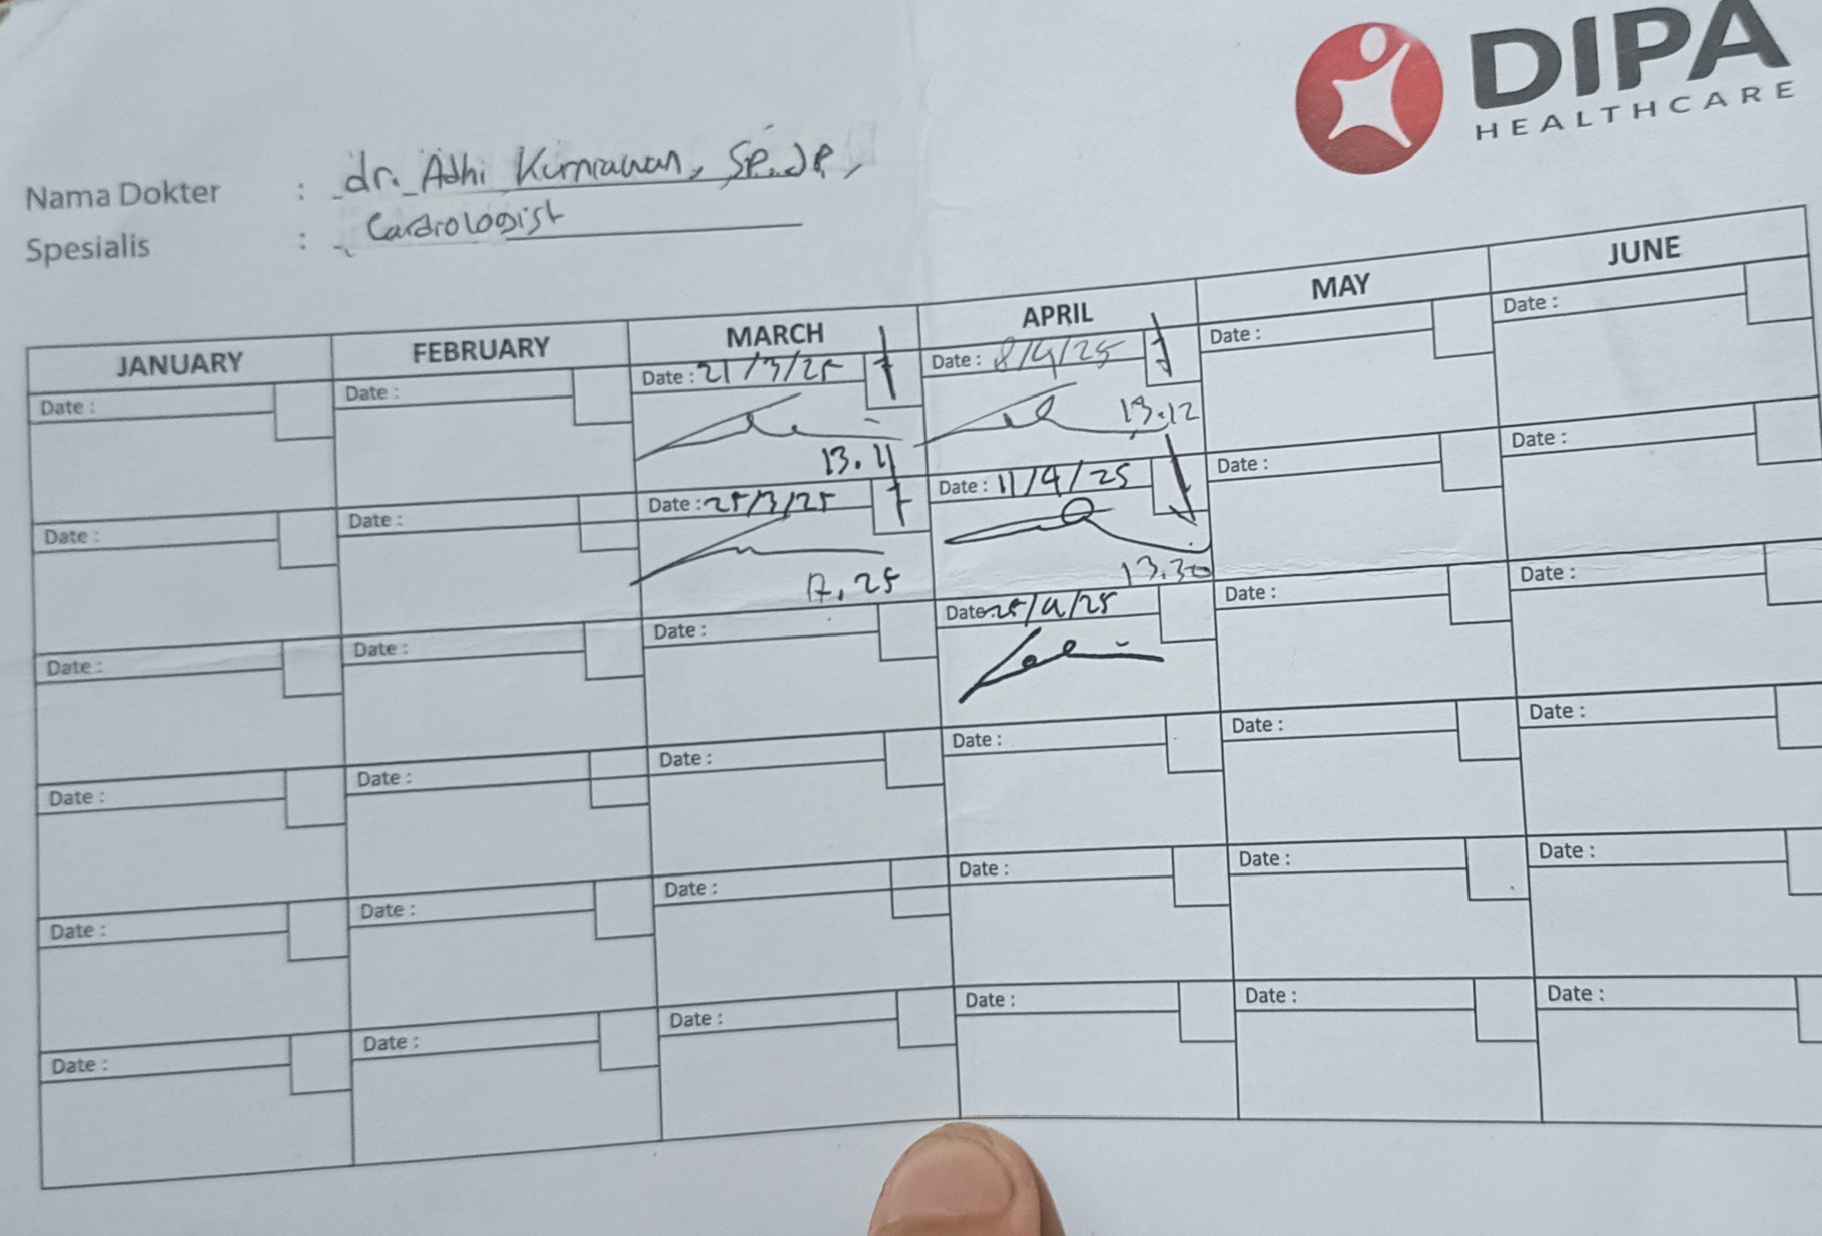 DIPA
HEALTHCARE
Nama Dokter : dr. Adhi Kurniawan, Sp.JP,
Spesialis : Cardiologist
JANUARY FEBRUARY MARCH APRIL MAY JUNE
Date : Date : Date : 21/3/25 Date : 8/4/25 Date : Date :
13.11 13.12
Date : Date : Date : 25/3/25 Date : 11/4/25 Date : Date :
17.25 13.30
Date : Date : Date : Date 25/4/25 Date : Date :
Date : Date : Date : Date : Date : Date :
Date : Date : Date : Date : Date : Date :
Date : Date : Date : Date : Date : Date :